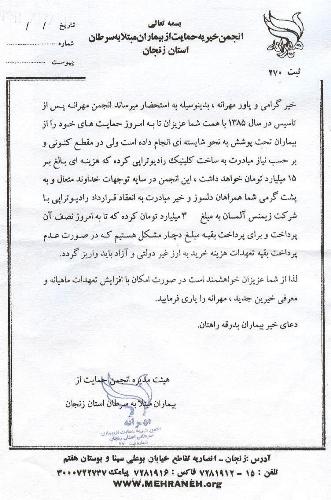 بسمه تعالی
انجمن خیریه حمایت از بیماران مبتلا به سرطان
استان زنجان
تاریخ / /
شماره
پیوست
ثبت ۲۷۰
خیر گرامی و یاور مهرانه ، بدینوسیله به استحضار میرساند انجمن مهرانه پس از
تاسیس در سال ۱۳۸۵ با همت شما عزیزان تا به امروز حمایت های خود را از
بیماران تحت پوشش به نحو شایسته ای انجام داده است ولی در مقطع کنونی و
بر حسب نیاز مبادرت به ساخت کلینیک رادیوتراپی کرده که هزینه ای بالغ بر
۱۵ میلیارد تومان خواهد داشت ، این انجمن در سایه توجهات خداوند متعال و به
پشت گرمی شما همراهان دلسوز و خیر مبادرت به انعقاد قرارداد رادیوتراپی با
شرکت زیمنس آلمان به مبلغ ۳ میلیارد تومان کرده که تا به امروز نصف آن
پرداخت و برای پرداخت بقیه مبلغ دچار مشکل هستیم که در صورت عدم
پرداخت بقیه تعهدات هزینه خرید به ارز غیر دولتی و آزاد باید واریز گردد.
لذا از شما عزیزان خواهشمند است در صورت امکان با افزایش تعهدات ماهیانه و
معرفی خیرین جدید ، مهرانه را یاری فرمایید.
دعای خیر بیماران بدرقه راهتان.
هیئت مدیره انجمن حمایت از
بیماران مبتلا به سرطان استان زنجان
مهرانه
آدرس: زنجان - انصاریه تقاطع خیابان بوعلی سینا و بوستان هفتم
تلفن : ۱۵ - ۷۲۸۱۹۱۲ فاکس : ۷۲۸۱۹۱۶ پیامک ۳۰۰۰۷۲۲۷۳۷
WWW.MEHRANEH.org